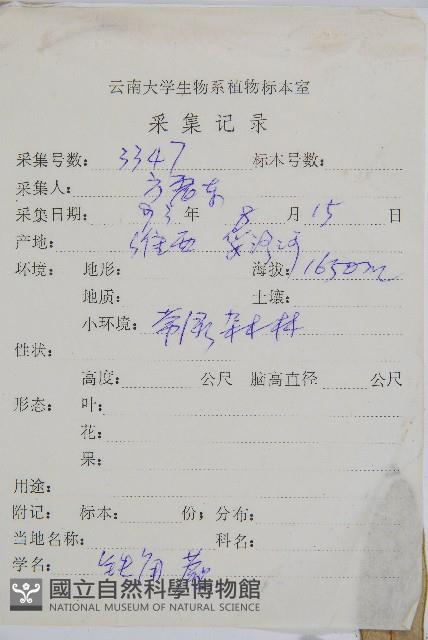 云南大学生物系植物标本室
采集记录
采集号数: 3347 标本号数:
采集人: 方
采集日期: 93 年 8 月 15 日
产地: 维西 河
环境: 地形: 海拔: 1650m
地质: 土壤:
小环境: 常绿杂木林
性状:
高度: 公尺 胸高直径 公尺
形态: 叶:
花:
果:
用途:
附记: 标本: 份; 分布:
当地名称: 科名:
学名: 钝角蕨
國立自然科學博物館
NATIONAL MUSEUM OF NATURAL SCIENCE